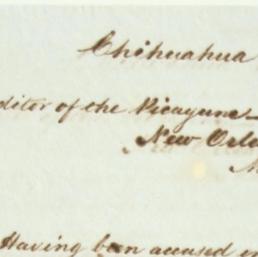 Chihuahua
ditor of the Picayune
New Orle
Having been accused